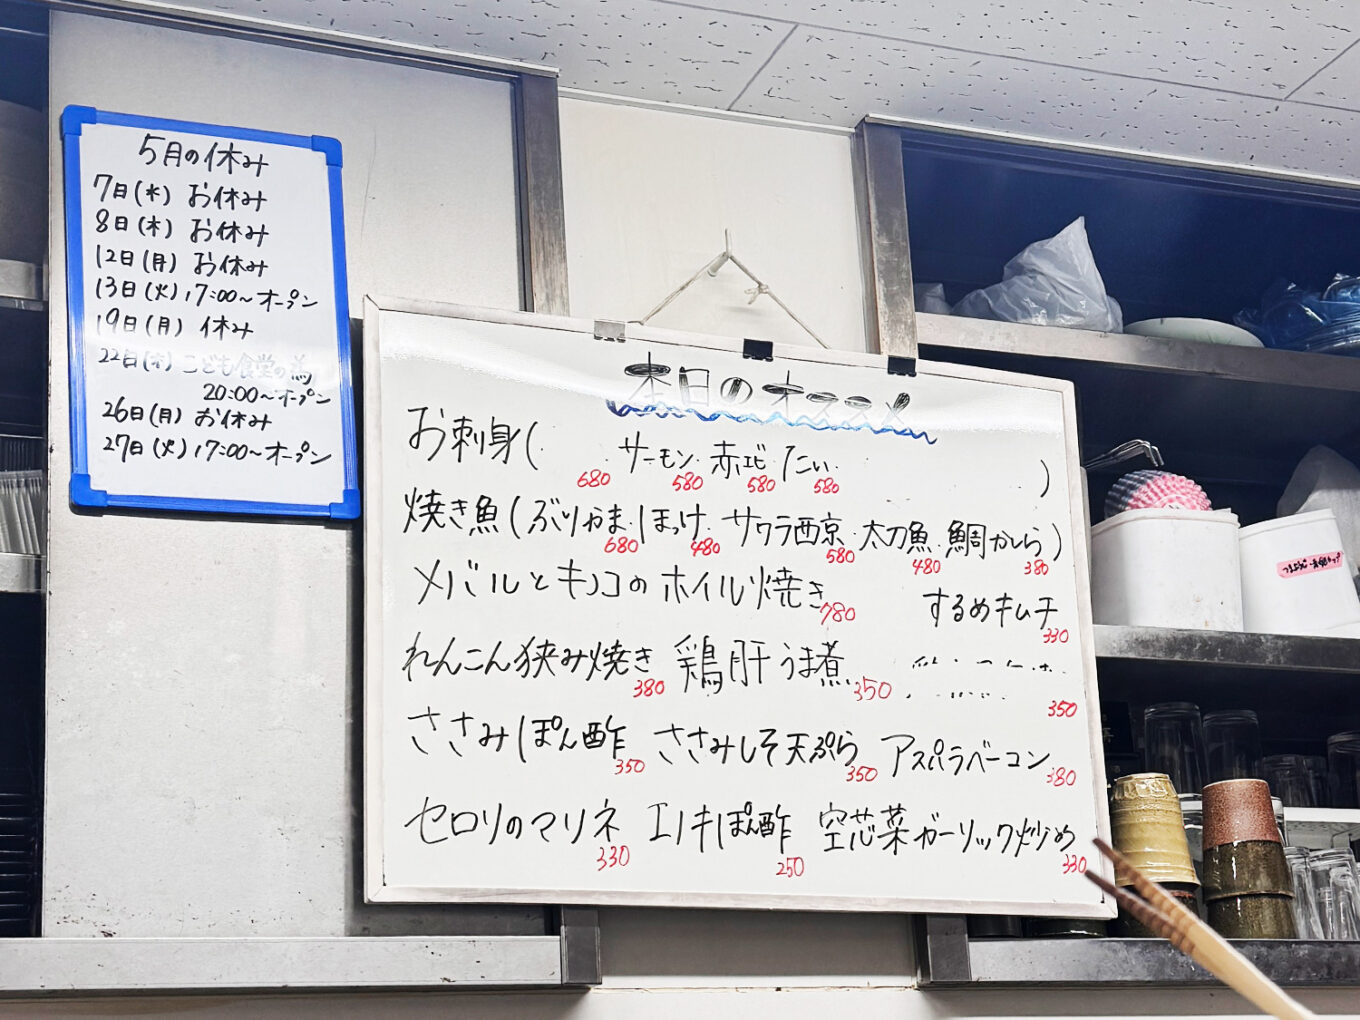 5月の休み
7日(水) お休み
8日(木) お休み
12日(月) お休み
13日(火) 17:00〜オープン
19日(月) 休み
22日(木) こども食堂の為
20:00〜オープン
26日(月) お休み
27日(火) 17:00〜オープン
本日のオススメ
お刺身( 680 サーモン 580 赤エビ 580 たい 580 )
焼き魚(ぶりかま 680 ほっけ 480 サワラ西京 580 太刀魚 480 鯛かしら 380)
メバルとキノコのホイル焼き 780 するめキムチ 330
れんこん狭み焼き 380 鶏肝うま煮 350 350
ささみぽん酢 350 ささみしそ天ぷら 350 アスパラベーコン 380
セロリのマリネ 330 エノキぽん酢 250 空芯菜ガーリック炒め 330